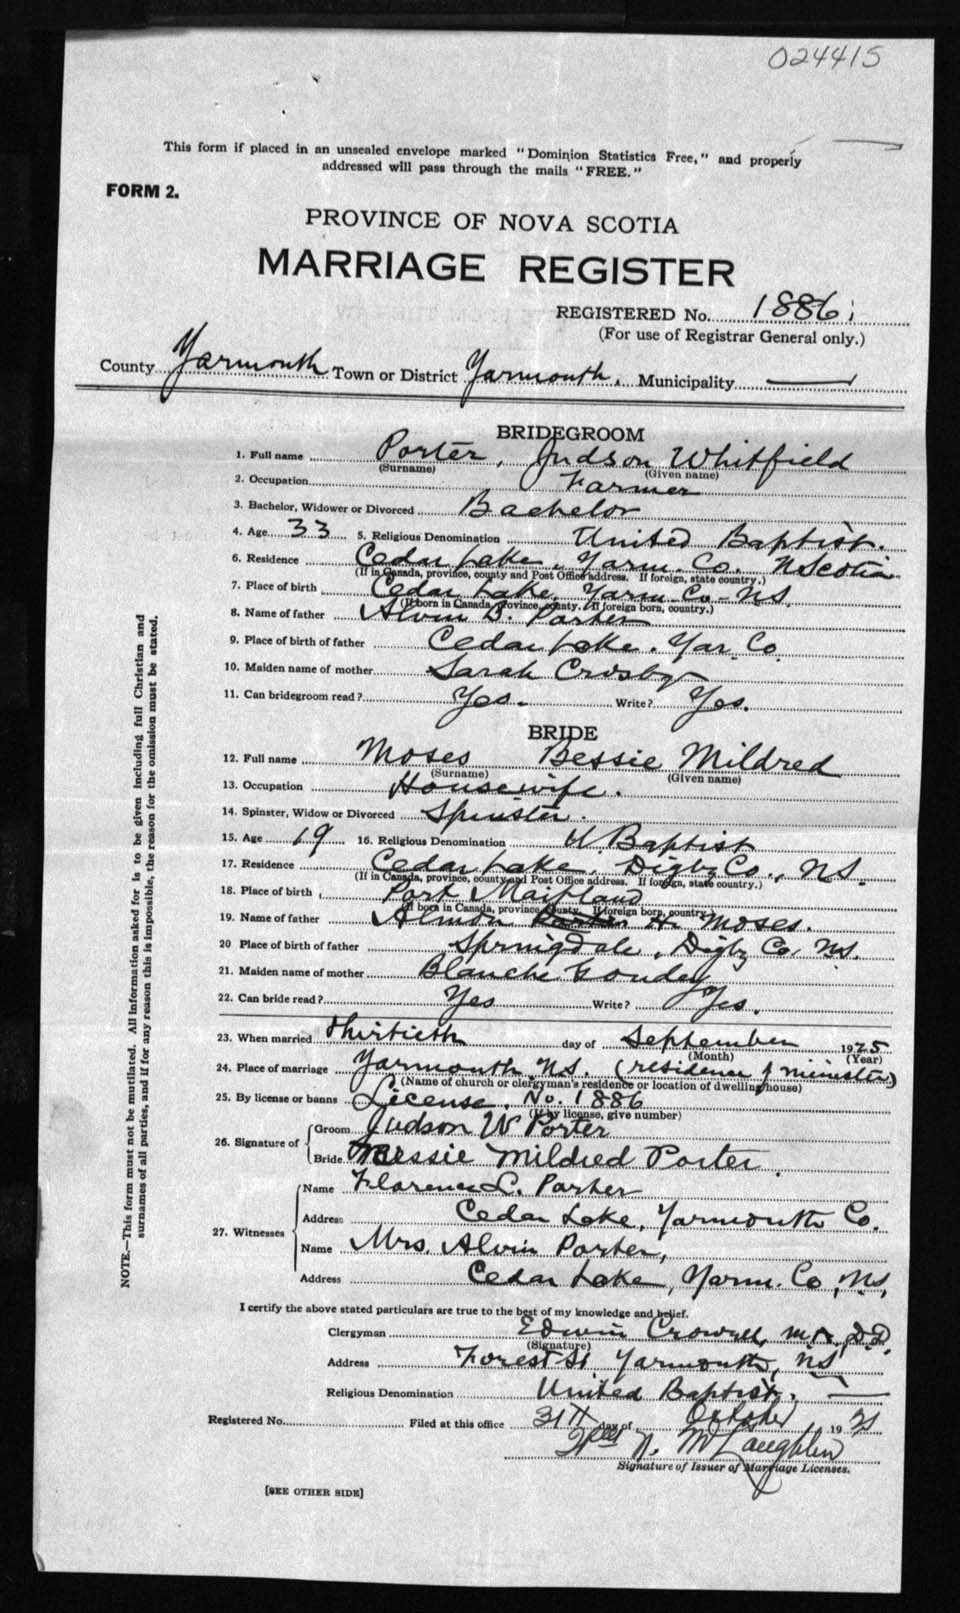 024415
This form if placed in an unsealed envelope marked "Dominion Statistics Free," and properly
addressed will pass through the mails "FREE."
FORM 2.
PROVINCE OF NOVA SCOTIA
MARRIAGE REGISTER
REGISTERED No. 1886
(For use of Registrar General only.)
County Yarmouth Town or District Yarmouth. Municipality —
BRIDEGROOM
1. Full name Porter, Judson Whitfield
(Surname) (Given name)
2. Occupation Farmer
3. Bachelor, Widower or Divorced Bachelor
4. Age 33 5. Religious Denomination United Baptist.
6. Residence Cedar Lake, Yarm. Co. N Scotia
(If in Canada, province, county and Post Office address. If foreign, state country.)
7. Place of birth Cedar Lake, Yarm. Co- N.S.
(If born in Canada, province, county. If foreign born, country.)
8. Name of father Alvin D. Porter
9. Place of birth of father Cedar Lake. Yar. Co.
10. Maiden name of mother Sarah Crosby
11. Can bridegroom read? Yes. Write? Yes.
BRIDE
12. Full name Moses Bessie Mildred
(Surname) (Given name)
13. Occupation Housewife.
14. Spinster, Widow or Divorced Spinster.
15. Age 19 16. Religious Denomination U. Baptist
17. Residence Cedar Lake, Digby Co., N.S.
(If in Canada, province, county and Post Office address. If foreign, state country.)
18. Place of birth Port Maitland
(If born in Canada, province, county. If foreign born, country.)
19. Name of father Almon H. Moses.
20 Place of birth of father Springdale, Digby Co. N.S.
21. Maiden name of mother Blanche Goudey
22. Can bride read? Yes Write? Yes.
23. When married Thirtieth day of September 1925
(Month) (Year)
24. Place of marriage Yarmouth N.S. (residence of minister)
(Name of church or clergyman's residence or location of dwelling house)
25. By license or banns License, No. 1886
(If by license, give number)
26. Signature of Groom Judson W Porter
Bride Bessie Mildred Porter.
27. Witnesses Name Florence L. Porter
Address Cedar Lake, Yarmouth Co.
Name Mrs. Alvin Porter,
Address Cedar Lake, Yarm. Co, N.S,
I certify the above stated particulars are true to the best of my knowledge and belief.
Clergyman Edwin Crowell, M.A, D.D.
(Signature)
Address Forest St Yarmouth, N.S
Religious Denomination United Baptist.
Registered No. Filed at this office 31st day of October 19
N. McLaughlin
Signature of Issuer of Marriage Licenses.
[SEE OTHER SIDE]
NOTE.—This form must not be mutilated. All information asked for is to be given including full Christian and
surnames of all parties, and if for any reason this is impossible, the reason for the omission must be stated.